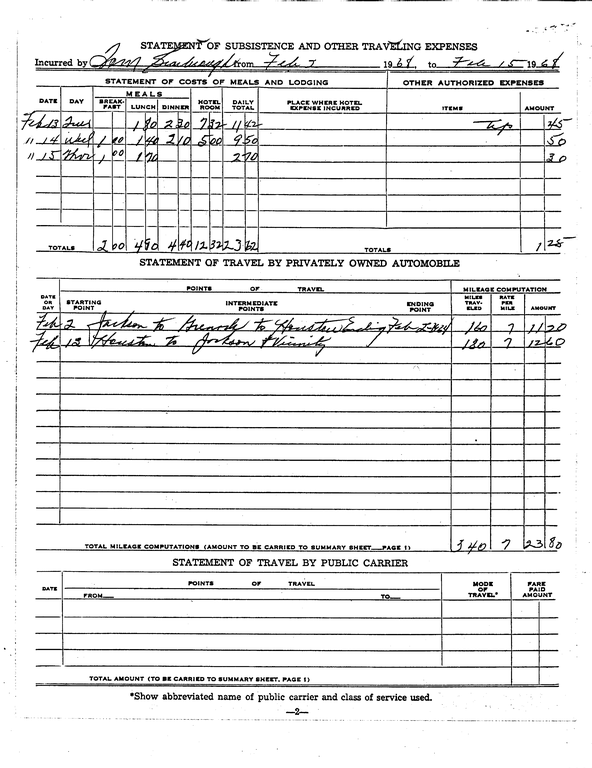 STATEMENT OF SUBSISTENCE AND OTHER TRAVELING EXPENSES
Incurred by Tom Scarbrough from Feb 2 1968, to Feb 15 1968
STATEMENT OF COSTS OF MEALS AND LODGING OTHER AUTHORIZED EXPENSES
MEALS
DATE DAY BREAK-FAST LUNCH DINNER HOTEL ROOM DAILY TOTAL PLACE WHERE HOTEL EXPENSE INCURRED ITEMS AMOUNT
Feb 13 Tues 1 80 2 30 7 32 11 42 Tip 45
" 14 Wed 1 00 1 40 2 10 5 00 9 50 50
" 15 Thor 1 00 1 70 2 70 30
TOTALS 2 00 4 90 4 40 12 32 23 62 TOTALS 1 25
STATEMENT OF TRAVEL BY PRIVATELY OWNED AUTOMOBILE
POINTS OF TRAVEL MILEAGE COMPUTATION
DATE OR DAY STARTING POINT INTERMEDIATE POINTS ENDING POINT MILES TRAV-ELED RATE PER MILE AMOUNT
Feb 2 Jackson to Greenwood to Houston Ending Feb 160 7 11 20
Feb 12 Houston to Jackson & Vicinity 180 7 12 60
TOTAL MILEAGE COMPUTATIONS (AMOUNT TO BE CARRIED TO SUMMARY SHEET—PAGE 1) 340 7 23 80
STATEMENT OF TRAVEL BY PUBLIC CARRIER
DATE POINTS OF TRAVEL MODE OF TRAVEL* FARE PAID AMOUNT
FROM— TO—
TOTAL AMOUNT (TO BE CARRIED TO SUMMARY SHEET, PAGE 1)
*Show abbreviated name of public carrier and class of service used.
—2—